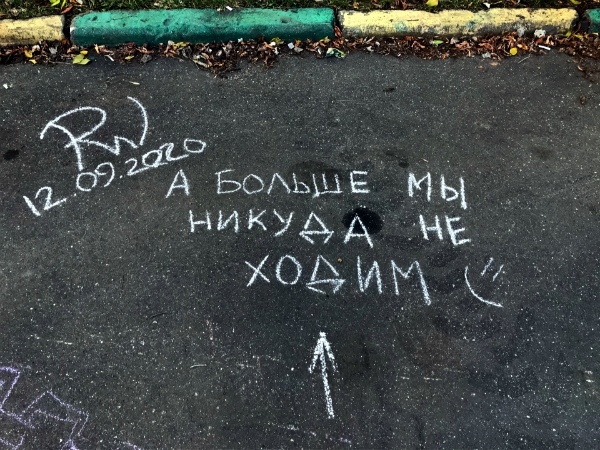 RW
12.09.2020
А БОЛЬШЕ МЫ
НИКУДА НЕ
ХОДИМ